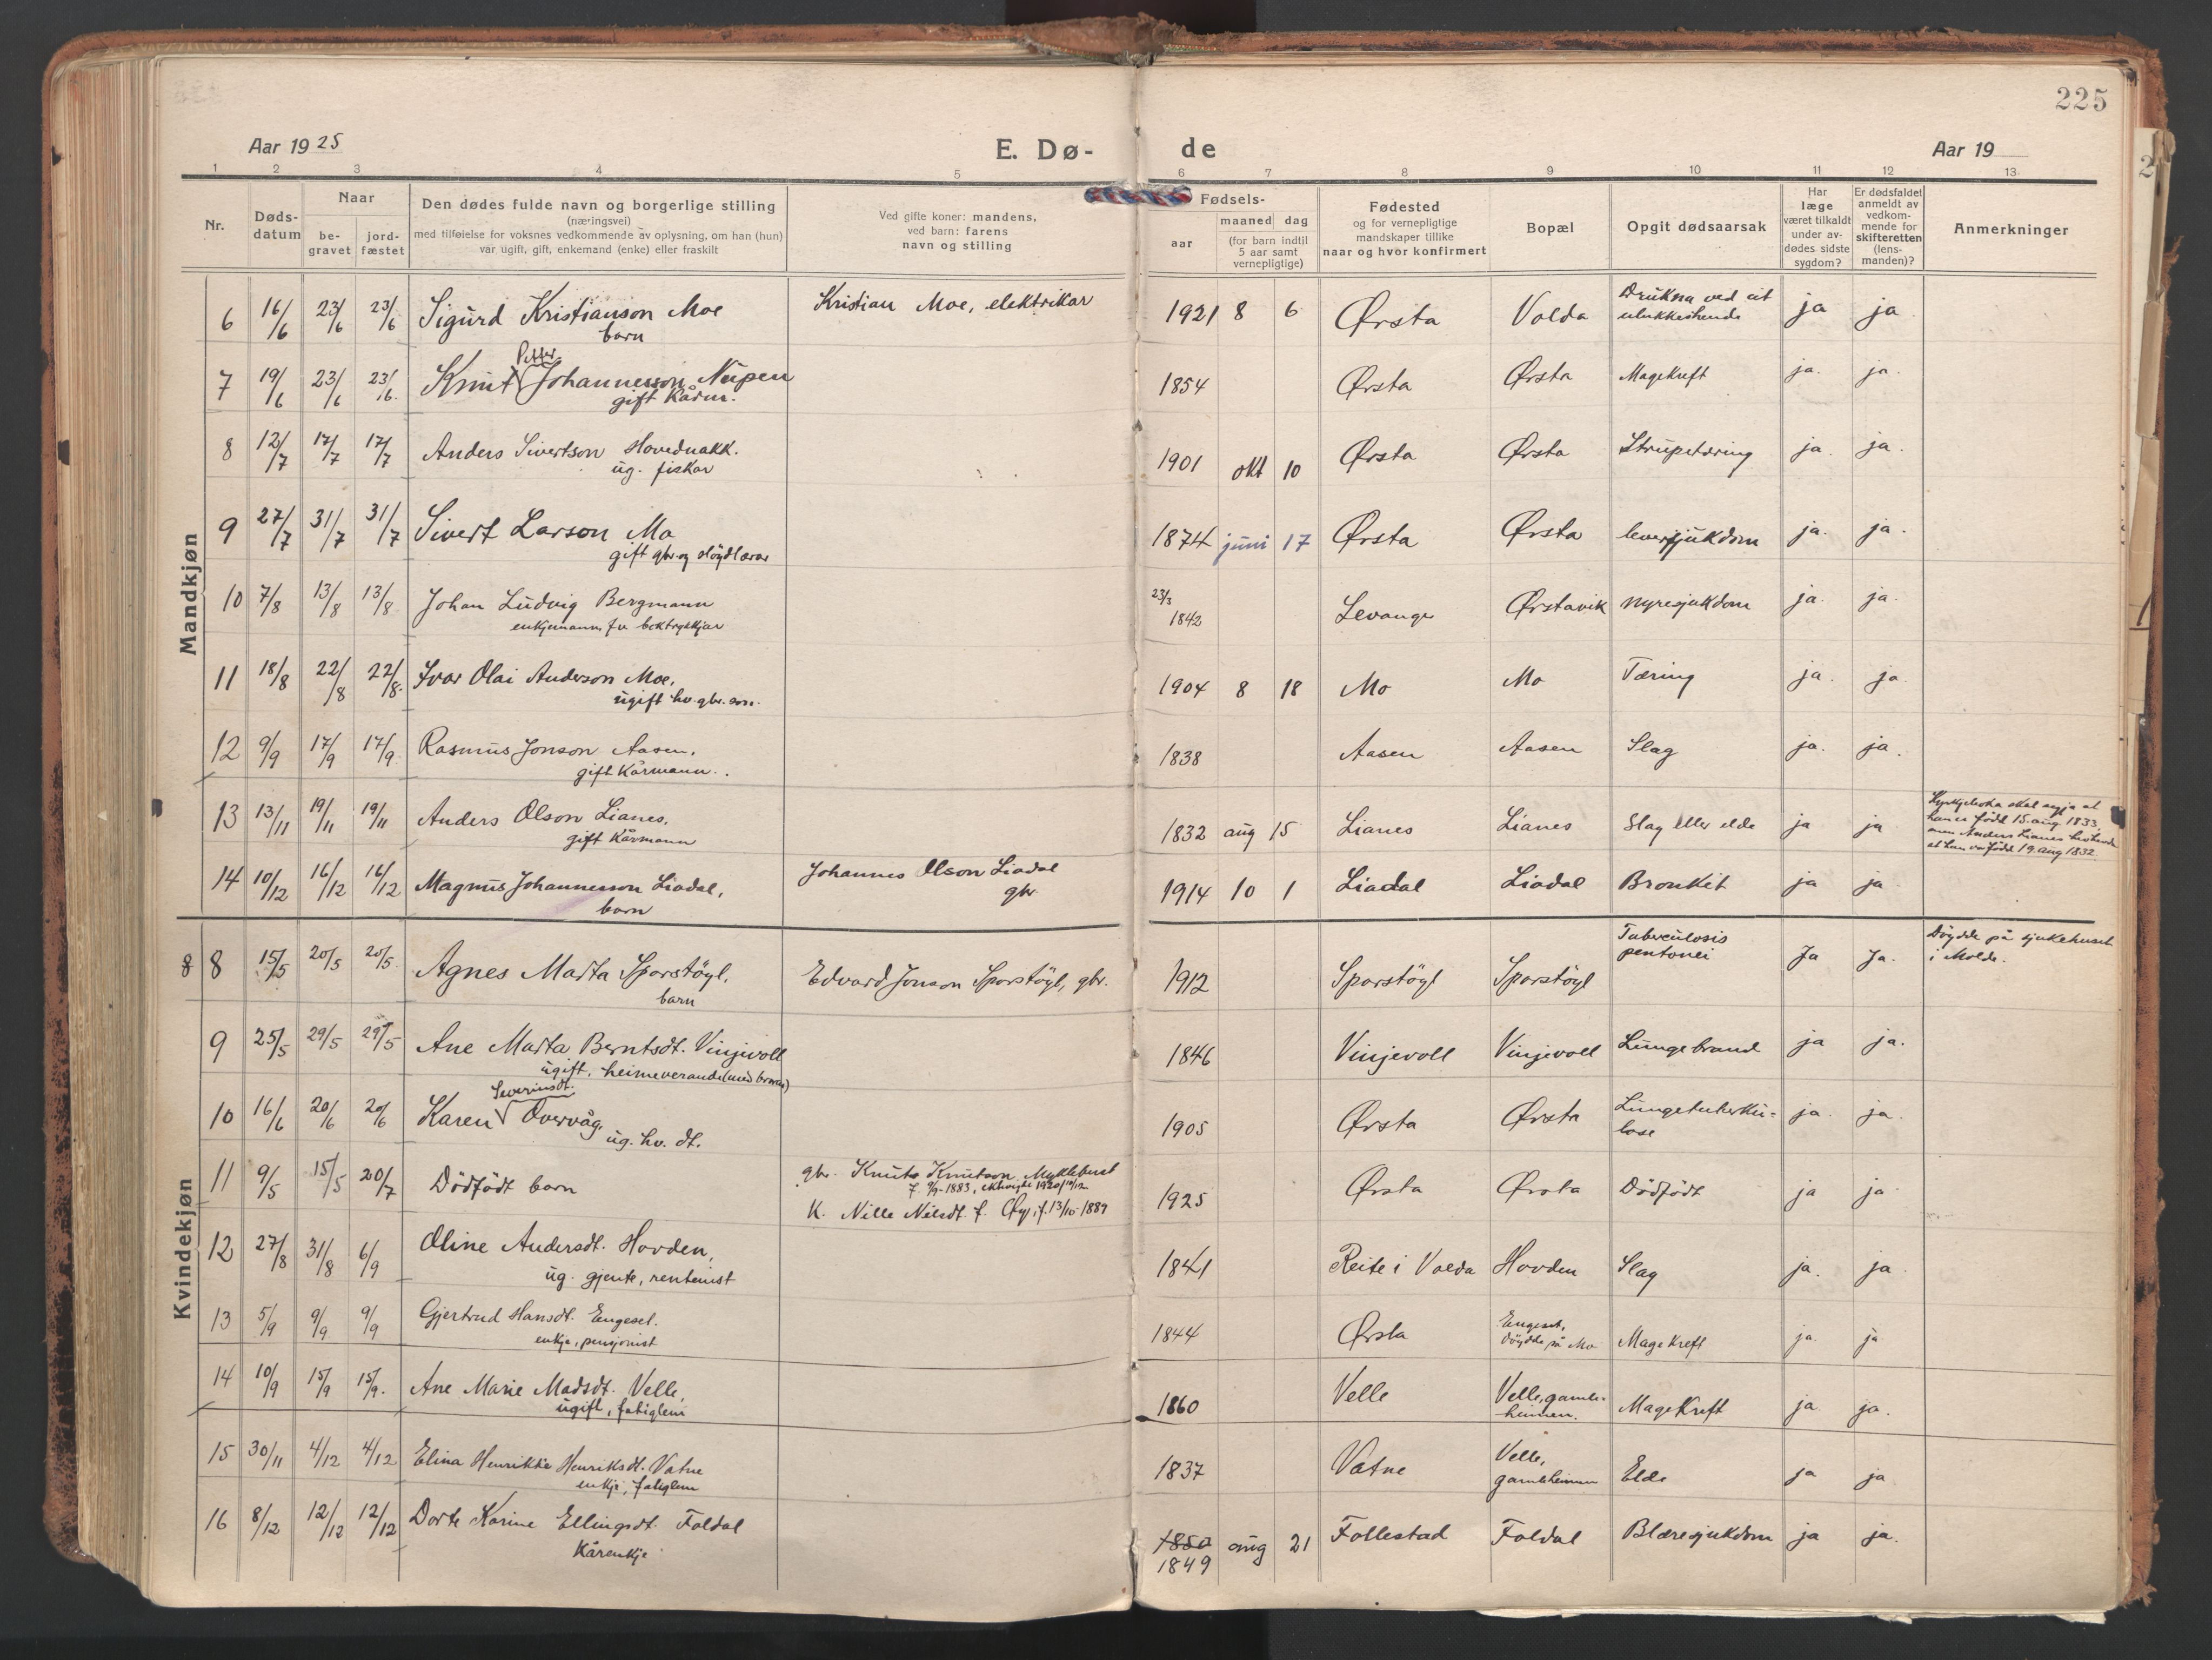 225
Aar 1925
E. Dø-
de
Aar 19
1 2 3 4 5 6 7 8 9 10 11 12 13
Nr.
Døds-
datum
Naar
be-
gravet
jord-
fæstet
Den dødes fulde navn og borgerlige stilling
(næringsvei)
med tilføielse for voksnes vedkommende av oplysning, om han (hun)
var ugift, gift, enkemand (enke) eller fraskilt
Ved gifte koner: mandens,
ved barn: farens
navn og stilling
Fødsels-
aar
maaned dag
(for barn indtil
5 aar samt
vernepligtige)
Fødested
og for vernepligtige
mandskaper tillike
naar og hvor konfirmert
Bopæl
Opgit dødsaarsak
Har
læge
været tilkaldt
under av-
dødes sidste
sygdom?
Er dødsfaldet
anmeldt av
vedkom-
mende for
skifteretten
(lens-
manden)?
Anmerkninger
Mandkjøn
6 16/6 23/6 23/6 Sigurd Kristianson Moe Kristian Moe, elektrikar 1921 8 6 Ørsta Volda Drukna ved eit ja ja
barn ulukkeshende
Petter
7 19/6 23/6 23/6. Knut Johannesson Nupen 1854 Ørsta Ørsta Magekreft ja. ja.
gift Kårm.
8 12/7 17/7 17/7 Anders Sivertson Hovednakk. 1901 okt 10 Ørsta Ørsta Strupetæring ja. ja.
ug. fiskar
9 27/7 31/7 31/7 Sivert Larson Mo 1874 juni 17 Ørsta Ørsta leversjukdom ja. ja.
gift gbr og sløydlærar
10 7/8 13/8 13/8 Johan Ludvig Bergmann 23/3 1842 Levanger Ørstavik nyresjukdom ja. ja.
enkjemann, fv. boktrykkjar
11 18/8 22/8 22/8. Ivar Olai Anderson Moe. 1904 8 18 Mo Mo Tæring ja. ja
ugift hv. gbr. son.
12 9/9 17/9 17/9 Rasmus Jonson Aasen. 1838 Aasen Aasen Slag ja. ja.
gift Kårmann.
13 13/11 19/11 19/11 Anders Olson Lianes, 1832 aug 15 Lianes Lianes Slag eller elde ja ja
gift Kårmann
Kyrkjeboka skal segja at
han er född 15. aug 1833,
men Anders Lianes
at han var född 19. aug 1832.
14 10/12 16/12 16/12 Magnus Johannesson Liadal, Johannes Olson Liadal 1914 10 1 Liadal Liadal Bronkit ja ja
barn gbr.
Kvindekjøn
8 8 15/5 20/5 20/5. Agnes Marta Sporstöyl, Edvard Jonson Sporstöyl, gbr. 1912 Sporstöyl Sporstöyl Tuberculosis Ja Ja.
barn pentonei
Döydde på sjukehuset
i Molde.
9 25/5 29/5 29/5 Ane Marta Berntsdt. Vinjevoll 1846 Vinjevoll Vinjevoll Lungebrand ja ja.
ugift, heimeverande (med broren)
Severinsdt.
10 16/6 20/6 20/6 Karen Overvåg, 1905 Ørsta Ørsta Lungetuberku- ja. ja.
ug. hv. dt. lose
11 9/5 15/5 20/7 Dödfödt barn gbr. Knut Knutson Myklebust 1925 Ørsta Ørsta Dödfödt ja ja
K. Nille Nilsdt. f. Øye, f. 13/10-1889
12 27/8 31/8 6/9 Oline Andersdt. Hovden, 1841 Reite i Volda Hovden Slag ja. ja
ug. gjente, rentenist
13 5/9 9/9 9/9 Gjertrud Hansdt. Engeset. 1844 Ørsta Engeset, Magekreft ja. ja
enkje, pensjonist döydde på Mo
14 10/9 15/9 15/9. Ane Marie Madsdt. Velle, 1860 Velle Velle, gamle- Magekreft ja ja.
ugift, fatiglem heimen.
15 30/11 4/12 4/12 Elina Henrikke Henriksdt. Vatne 1837 Vatne Velle, Elde ja ja
enkje, fatiglem gamleheimen
16 8/12 12/12 12/12 Dorte Karine Ellingsdt. Foldal 1850 aug 21 Follestad Foldal Blæresjukdom ja ja.
Kårenkje 1849